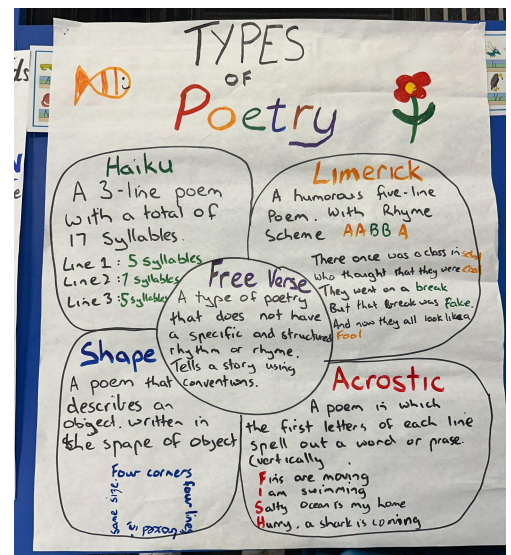 TYPES
OF
Poetry
Haiku
A 3-line poem
with a total of
17 Syllables.
Line 1: 5 syllables
Line 2: 7 syllables
Line 3: 5 syllables
Limerick
A humorous five-line
Poem. With Rhyme
Scheme AABBA
There once was a class in school
who thought that they were cool
They went on a break
But that break was fake.
And now they all look like a
Fool
Free Verse
A type of poetry
that does not have
a specific and structured
rhythm or rhyme.
Tells a story using
conventions.
Shape
A poem that
describes an
object, written in
the shape of object
Four corners
four lines
boxed in,
same size.
Acrostic
A poem in which
the first letters of each line
spell out a word or prase.
(vertically
Fins are moving
I am swimming
Salty ocean is my home
Hurry, a shark is coming
ds